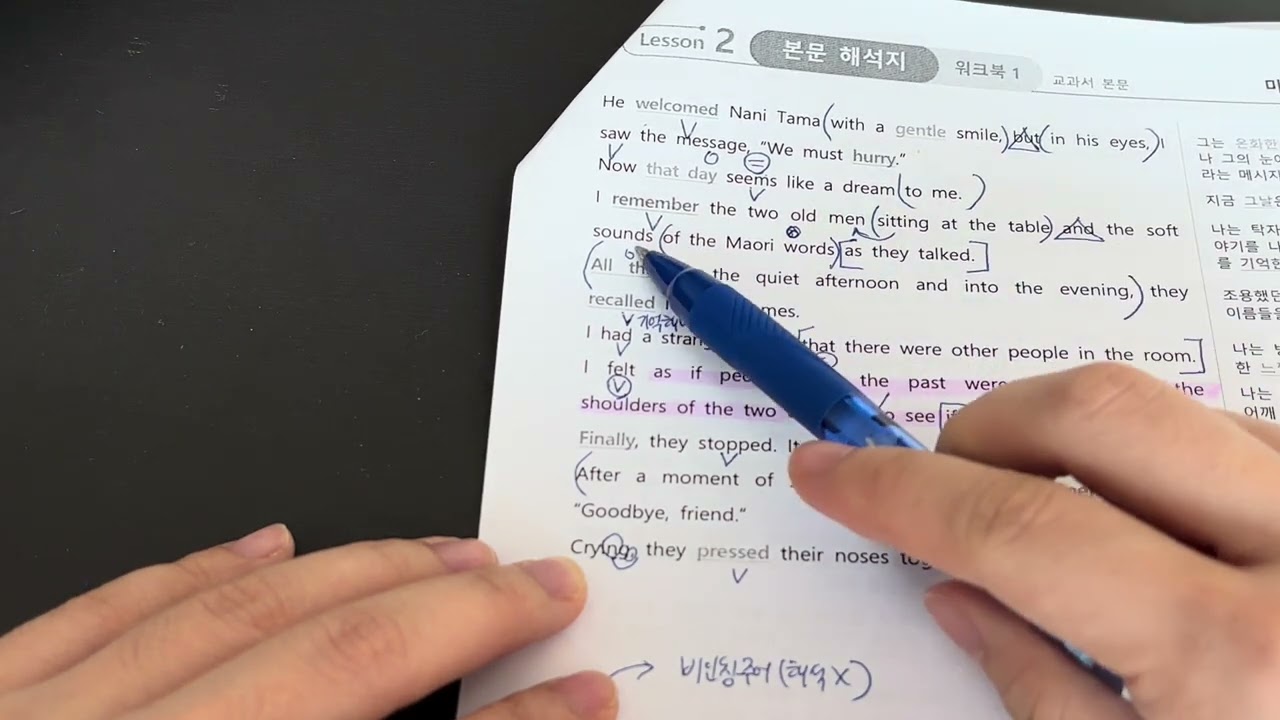 Lesson 2 본문 해석지 워크북 1 교과서 본문
He welcomed Nani Tama with a gentle smile, but in his eyes, I
saw the message, "We must hurry."
Now that day seems like a dream to me.
I remember the two old men sitting at the table and the soft
sounds of the Maori words as they talked.
All the quiet afternoon and into the evening, they
recalled
I had a that there were other people in the room.
I felt as if the past were the
shoulders of the two see
Finally, they stopped.
After a moment of
"Goodbye, friend."
Crying, they pressed their noses
비인칭주어 (해석 X)
그는 온화한
나 그의
라는 메시지
지금 그날은
나는 탁자
야기를 나
를 기억한
조용했던
이름들을
나는
한
나는
어깨